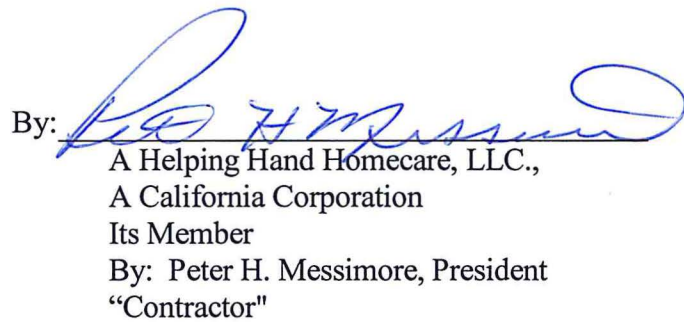 By: Peter H Messimore
A Helping Hand Homecare, LLC.,
A California Corporation
Its Member
By: Peter H. Messimore, President
“Contractor"